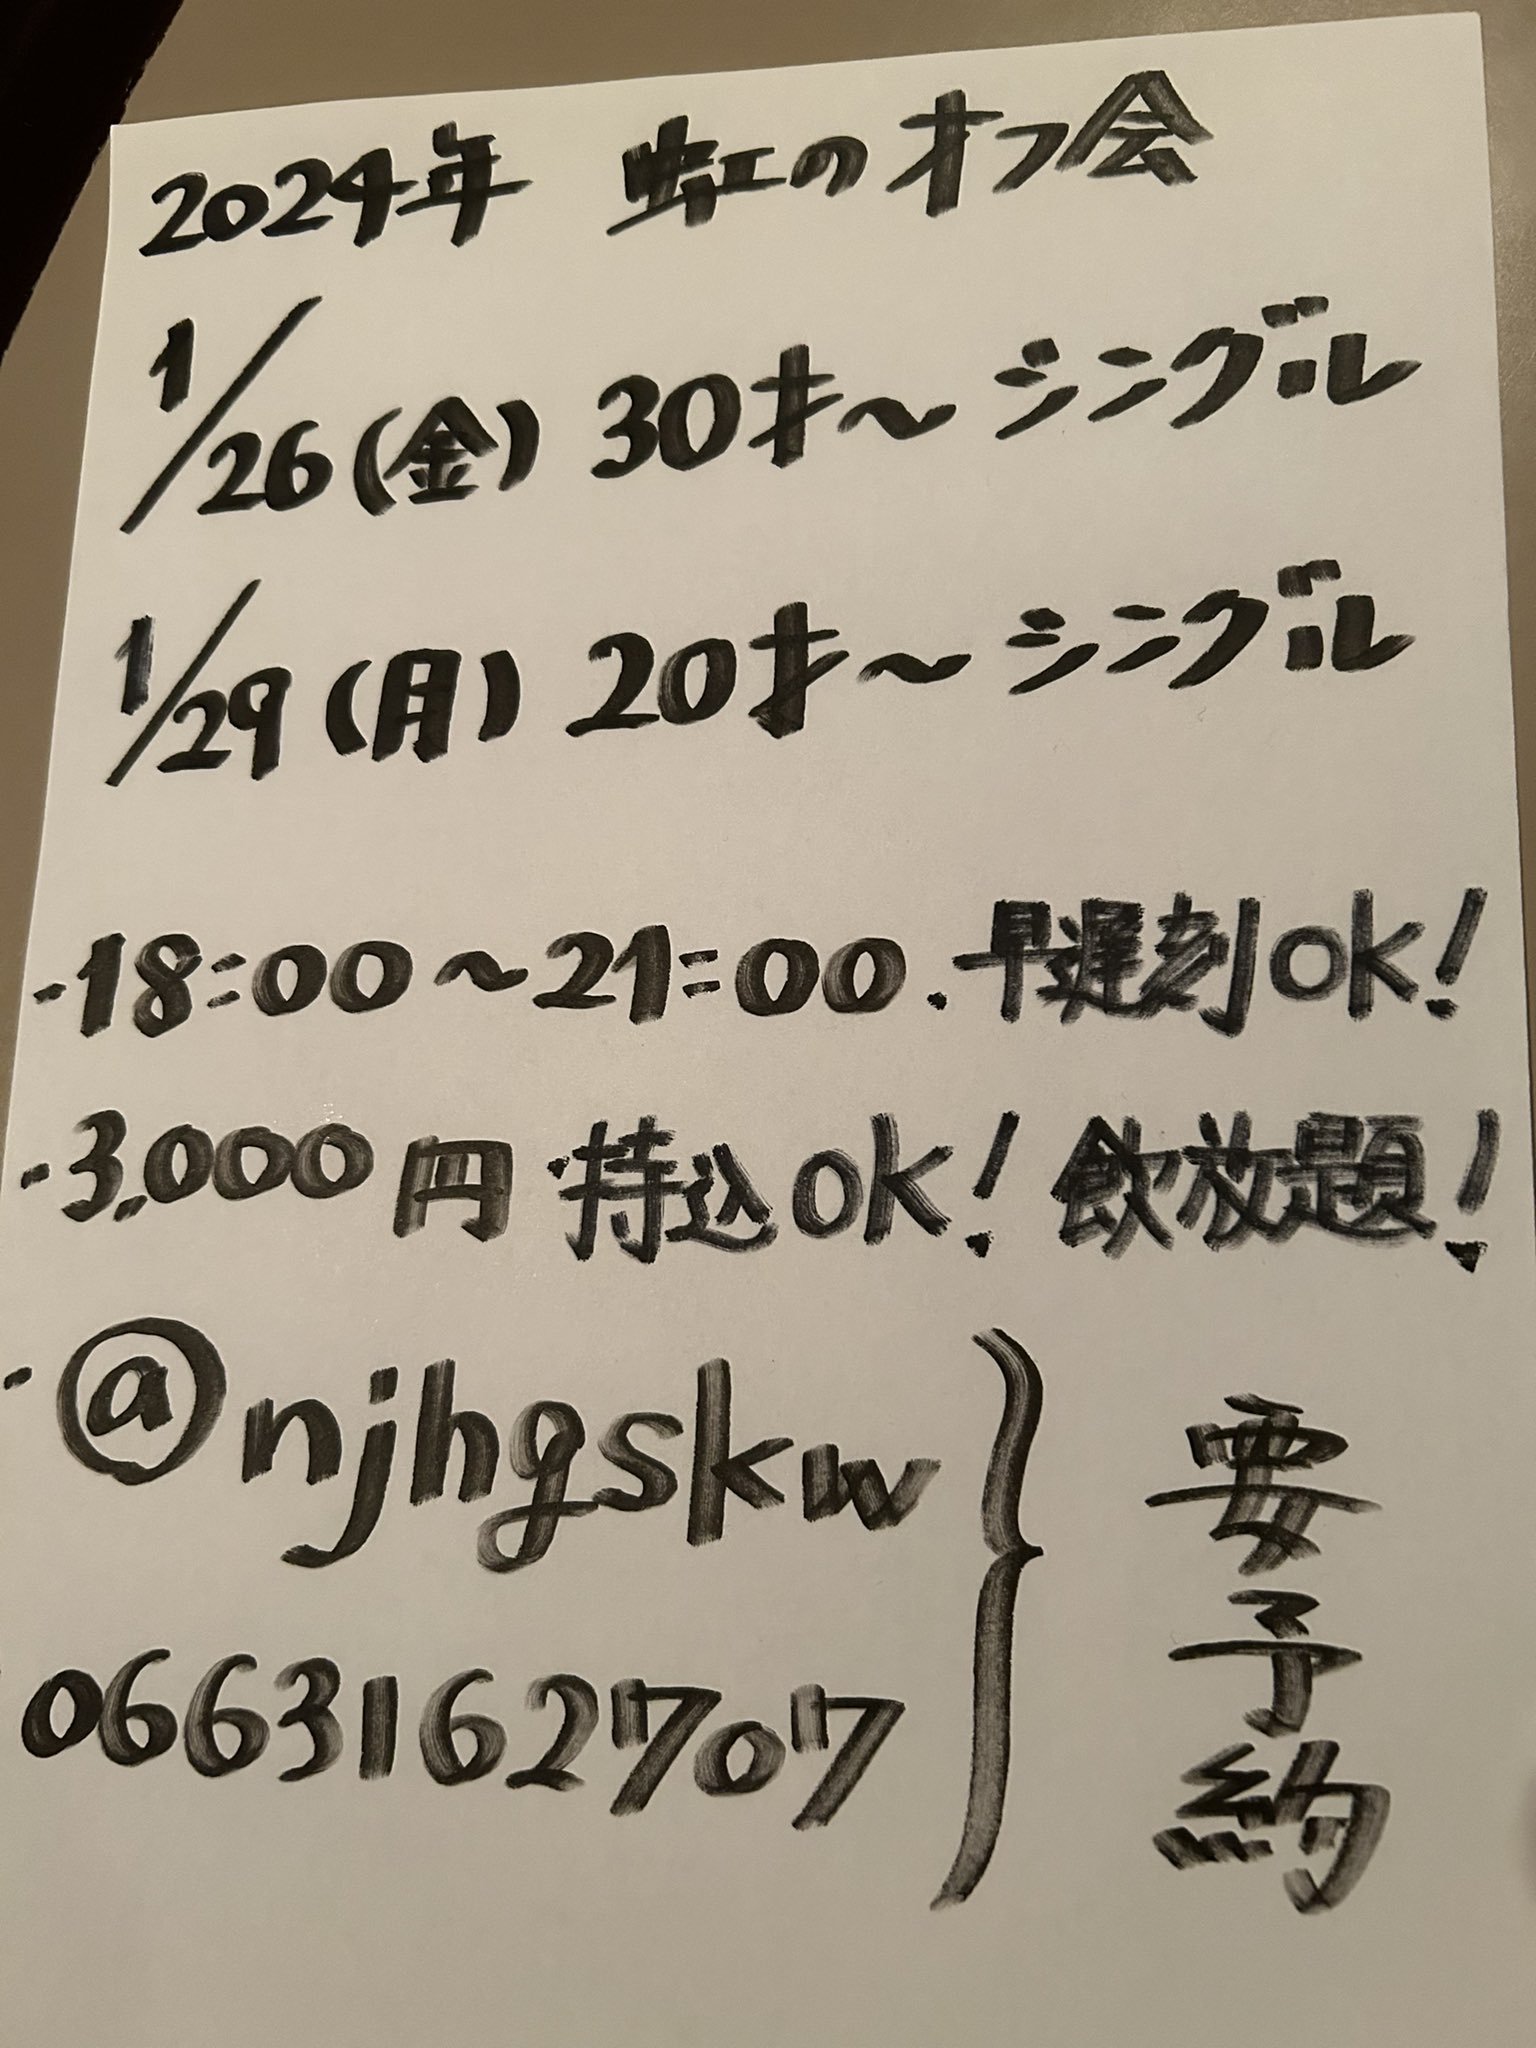 2024年 虹のオフ会
1/26(金) 30才～シングル
1/29(月) 20才～シングル
・18:00～21:00・早遅刻OK!
・3,000円・持込OK!飲放題!
・@njhgskw
0663162707
要予約